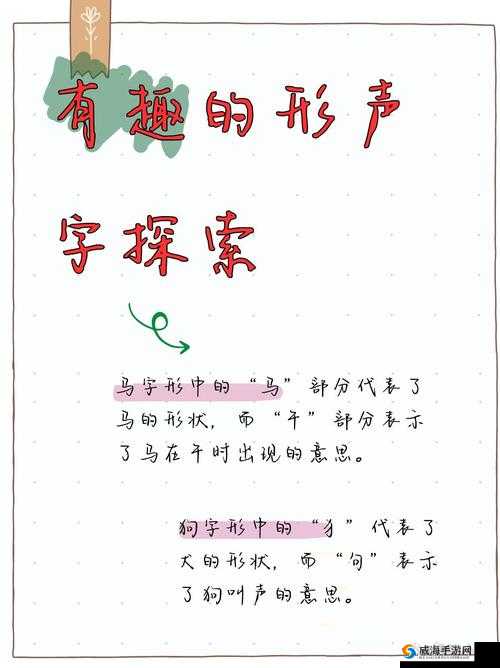 有趣的形声
字探索
马字形中的“马”部分代表了
马的形状，而“干”部分表示
了马在干时出现的意思。
狗字形中的“犭”代表了
犬的形状，而“句”表示
了狗叫声的意思。
威海手游网